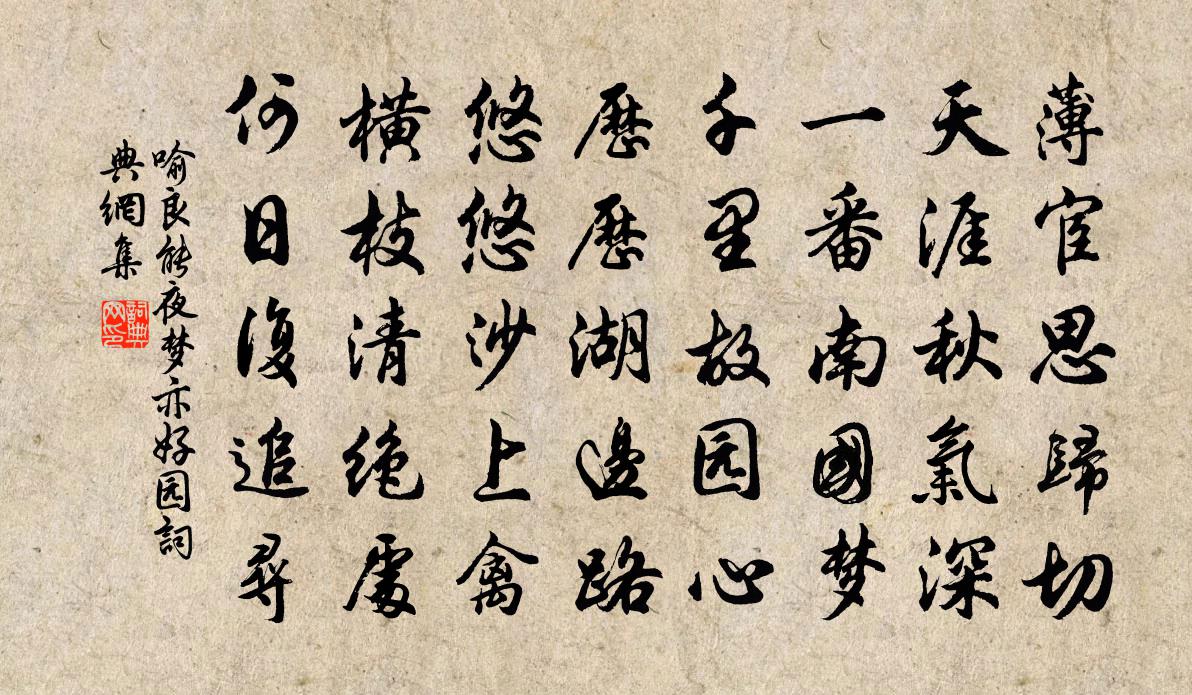 薄宦思歸切
天涯秋氣深
一番南國梦
千里故园心
歷歷湖邊路
悠悠沙上禽
橫枝清絶處
何日復追尋
喻良能夜梦亦好园詞
典網集
詞典
网印